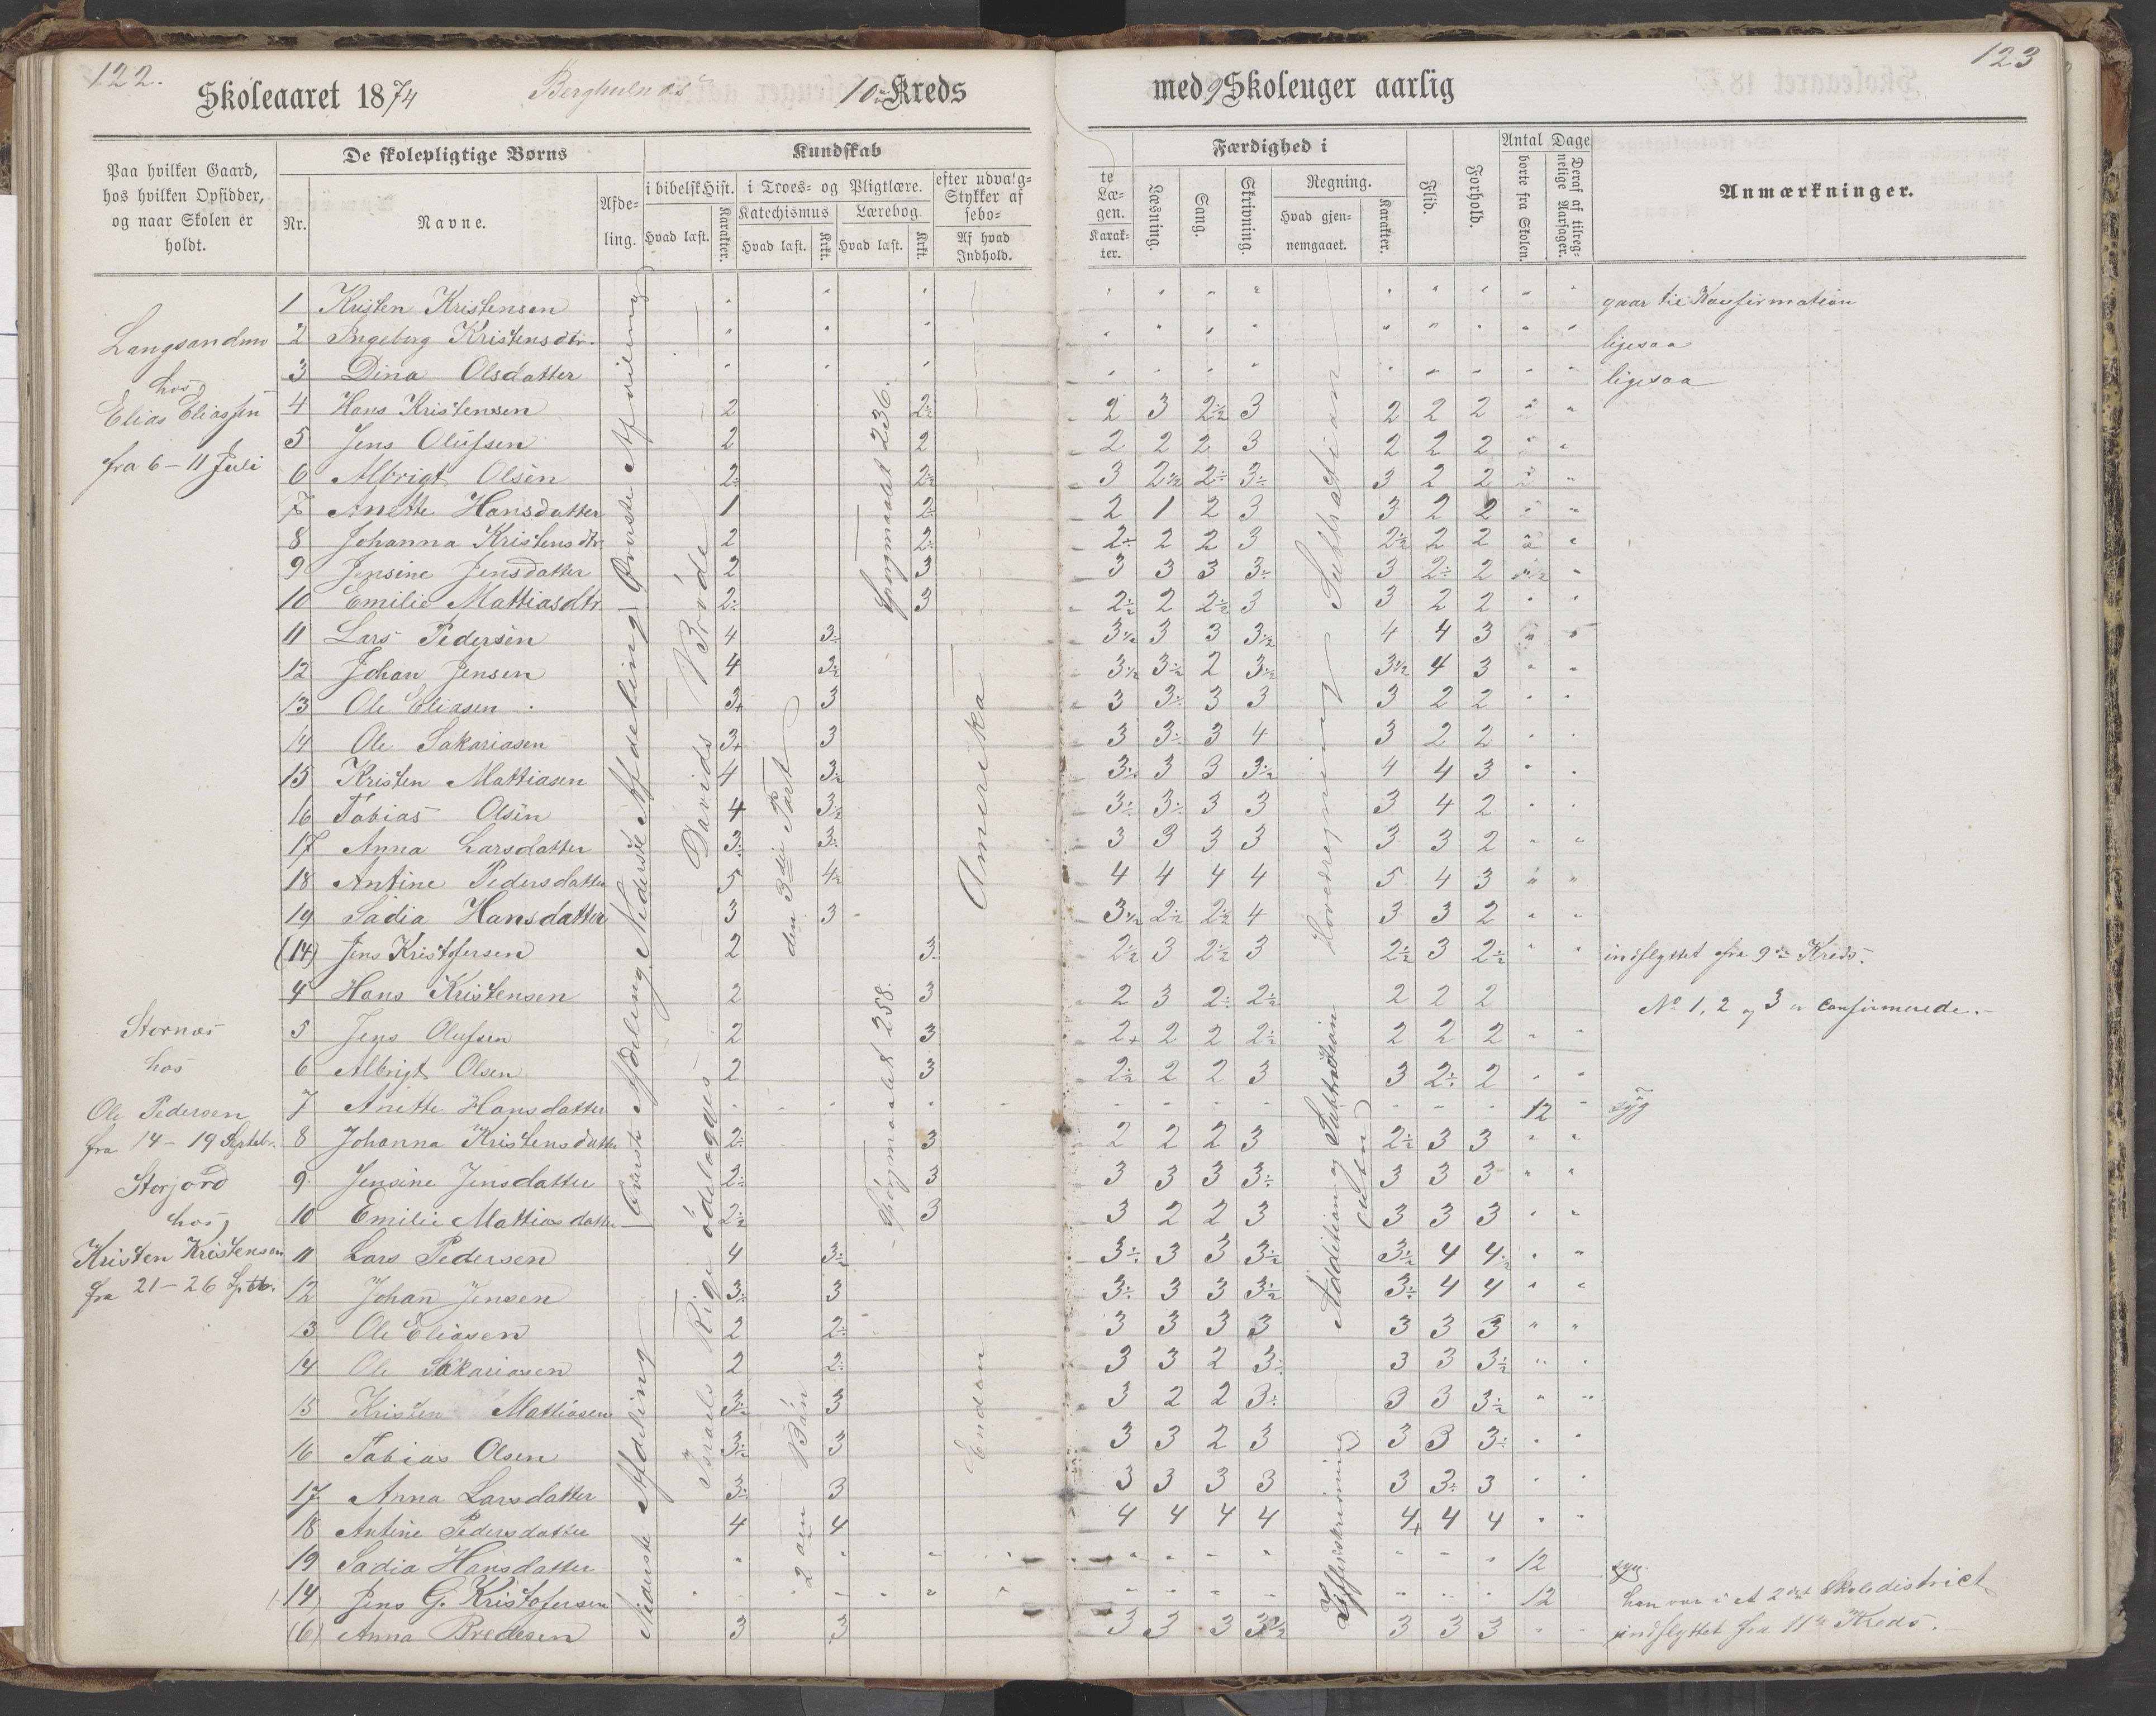 122.
Skoleaaret 1874 Berghulnæs 10de Kreds
Paa hvilken Gaard, hos hvilken Opsidder, og naar Skolen er holdt.
De skolepligtige Børns
Nr. Navne. Afdeling.
Kundskab
i bibelsk Hist. i Troes- og Pligtlære. efter udvalg-
Stykker af
sebo-
Katechismus Lærebog.
Hvad læst. Karakter. Hvad læst. Krkt. Hvad læst. Krkt. Af hvad Indhold.
Langsandmo
hos
Elias Eliassen
fra 6 – 11 Juli
1 Kristen Kristensen
2 Ingeborg Kristensdtr.
3 Dina Olsdatter
4 Hans Kristensen 2 2½
5 Jens Olufsen 2 2
6 Albrigt Olsen 2÷ 2½
7 Anette Hansdatter 1 2÷
8 Johanna Kristensdtr 2 2÷
9 Jensine Jensdatter 2 3
10 Emilie Mattiasdtr 2÷ 3
11 Lars Pedersen 4 3÷
12 Johan Jensen 4 3½
13 Ole Eliasen 3+ 3
14 Ole Sakariasen 3+ 3
15 Kristen Mattiasen 4 3½
16 Tobias Olsen 4 3½
17 Anna Larsdatter 3÷ 3÷
18 Antine Pedersdatter 5 4½
19 Sadia Hansdatter 3 3
(14) Jens Kristofersen 2 3
Øverste Afdeling
Nederste Afdeling
Davids Brøde
den 3die Part
Spørgmaalet 236.
Amerika
Stornæs
hos
Ole Pedersen
fra 14 – 19 Septebr.
Storjord
hos
Kristen Kristensen
fra 21 – 26 Sptb.
4 Hans Kristensen 2 3
5 Jens Olufsen 2 3
6 Albrigt Olsen 2 3
7 Anette Hansdatter
8 Johanna Kristensdatter 2÷ 3
9 Jensine Jensdatter 2÷ 3
10 Emilie Mattiasdatter 2½ 3
11 Lars Pedersen 4 3½
12 Johan Jensen 3÷ 3
13 Ole Eliasen 2 2÷
14 Ole Sakariasen 2 2÷
15 Kristen Mattiasen 3½ 3
16 Tobias Olsen 3÷ 3
17 Anna Larsdatter 3÷ 3
18 Antine Pedersdatter 4 4
19 Sadia Hansdatter
14 Jens G. Kristofersen
(6) Anna Bredesen 3 3
Øverste Afdeling
Nederste Afdeling
Israels Rige ødelægges
2 den Bøn
Spørgmaalet 258.
Enden
123
med 9 Skoleuger aarlig
te
Læ-
gen.
Karak-
ter.
Færdighed i
Læsning. Sang. Skrivning. Regning.
Hvad gjen-
nemgaaet. Karakter.
Flid. Forhold.
Antal Dage
borte fra Skolen. Deraf af tilreg-
nelige Aarsager.
Anmærkninger.
gaar til Konfirmation
ligesaa
ligesaa
2 3 2½ 3 2 2 2
2 2 2 3 2 2 2
3 2½ 2÷ 3÷ 3 2 2
2 1 2 3 3 2 2
2÷ 2 2 3 2½ 2 2
3 3 3 3÷ 3 2÷ 2
2½ 2 2½ 3 3 2 2
3½ 3 3 3½ 4 4 3
3½ 3½ 2 3½ 3½ 4 3
3 3÷ 3 3 3 2 2
3 3÷ 3 4 3 2 2
3÷ 3 3 3½ 4 4 3
3÷ 3÷ 3 3 3 4 2
3 3 3 3 3 3 2
4 4 4 4 5 4 3
3½ 2½ 2½ 4 3 3 2
2½ 3 2½ 3 2½ 3 2½ indflyttet fra 9de Kreds.
Subtraction
Hovedregning
2 3 2÷ 2½ 2 2 2 No 1, 2 og 3 er Confirmerede.
2+ 2 2 2½ 2 2 2
2½ 2 2 3 3 2÷ 2
12 syg
2 2 2 3 2½ 3 3
3 3 3 3÷ 3 3 3
3 2 2 3 3 3 3
3÷ 3 3 3½ 3½ 4 4½
3÷ 3 3 3½ 3÷ 4 4
3 3 3 3 3 3 3
3 3 2 3÷ 3 3 3½
3 2 2 3÷ 3 3 3½
3 3 2 3 3 3 3÷
3 3 3 3 3 3÷ 3
4 4 4 4 4+ 4 4
12 syg.
12 han var i et 2det Skoledistrict
3 3 3 3½ 3 3 3 indflyttet fra 11te Kreds.
Addition og Subtraction
Zifferskrivning